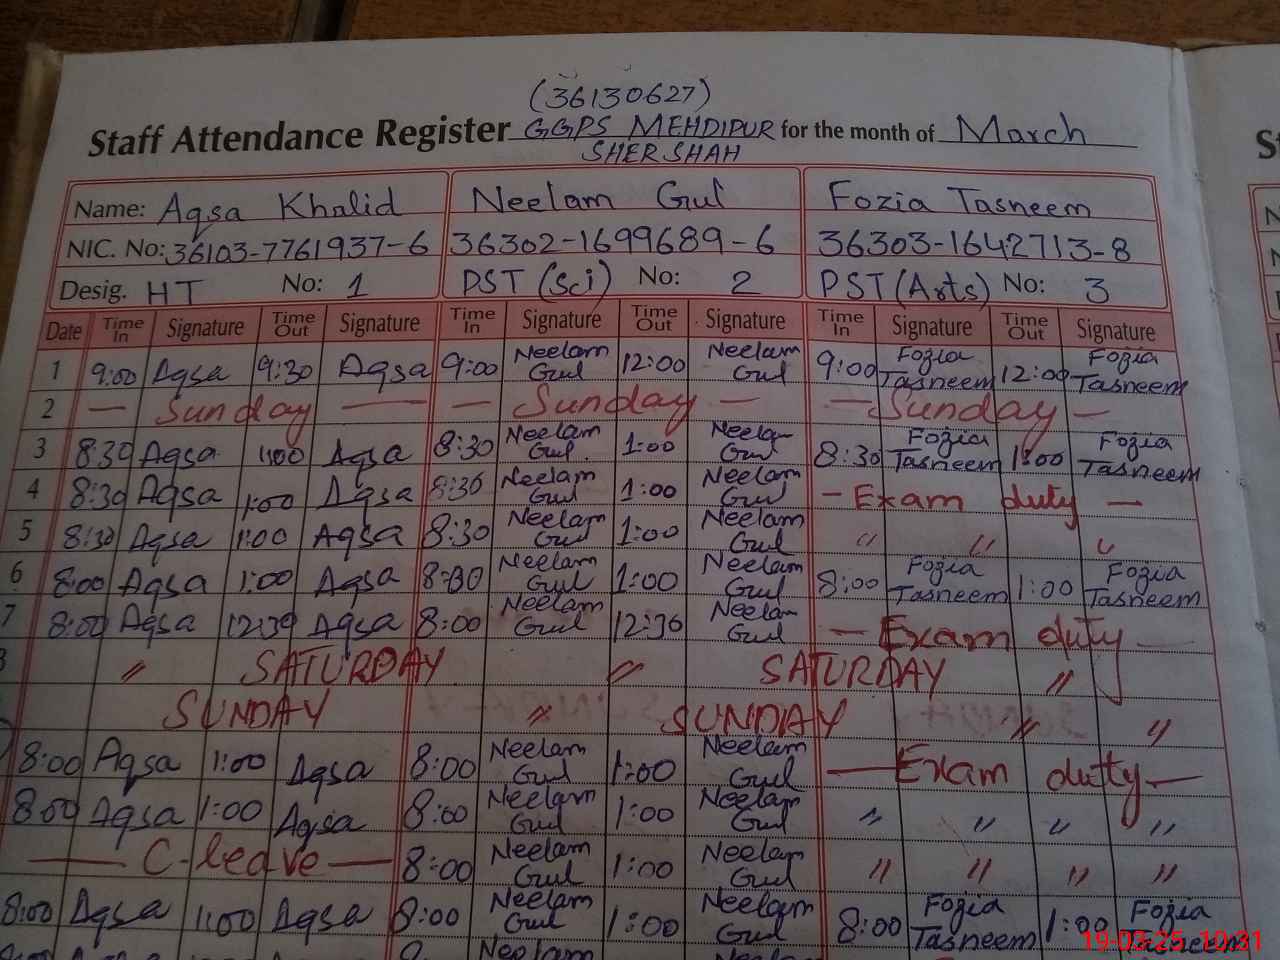 (36130627)
Staff Attendance Register GGPS MEHDIPUR for the month of March
SHER SHAH
Name: Aqsa Khalid Neelam Gul Fozia Tasneem
NIC. No: 36103-7761937-6 36302-1699689-6 36303-1642713-8
Desig. HT No: 1 PST (Sci) No: 2 PST (Arts) No: 3
Date Time In Signature Time Out Signature Time In Signature Time Out Signature Time In Signature Time Out Signature
1 9:00 Aqsa 9:30 Aqsa 9:00 Neelam Gul 12:00 Neelam Gul 9:00 Fozia Tasneem 12:00 Fozia Tasneem
2 — Sunday — — Sunday — — Sunday —
3 8:30 Aqsa 1:00 Aqsa 8:30 Neelam Gul 1:00 Neelam Gul 8:30 Fozia Tasneem 1:00 Fozia Tasneem
4 8:30 Aqsa 1:00 Aqsa 8:30 Neelam Gul 1:00 Neelam Gul — Exam duty —
5 8:30 Aqsa 1:00 Aqsa 8:30 Neelam Gul 1:00 Neelam Gul " " "
6 8:00 Aqsa 1:00 Aqsa 8:00 Neelam Gul 1:00 Neelam Gul 8:00 Fozia Tasneem 1:00 Fozia Tasneem
7 8:00 Aqsa 12:30 Aqsa 8:00 Neelam Gul 12:30 Neelam Gul — Exam duty —
" SATURDAY " SATURDAY "
SUNDAY " SUNDAY " "
8:00 Aqsa 1:00 Aqsa 8:00 Neelam Gul 1:00 Neelam Gul — Exam duty —
8:00 Aqsa 1:00 Aqsa 8:00 Neelam Gul 1:00 Neelam Gul " " " "
— C-leave — 8:00 Neelam Gul 1:00 Neelam Gul " " " "
8:00 Aqsa 1:00 Aqsa 8:00 Neelam Gul 1:00 Neelam Gul 8:00 Fozia Tasneem 1:00 Fozia Tasneem
Neelam Neelam
19-03-25 10:31